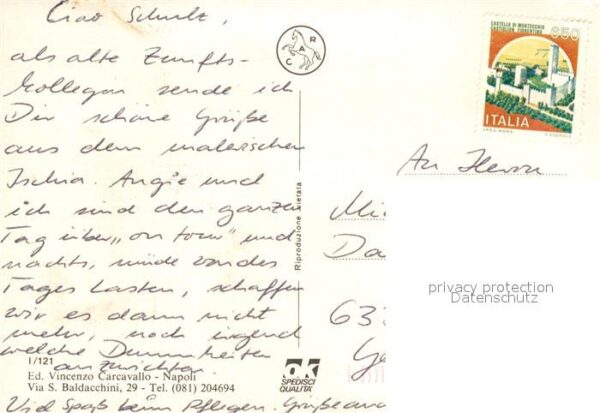 Ciao Schulz,
als alte Zunfts-
kollegen sende ich
Dir schöne Grüße
aus dem malerischen
Ischia. Angie und
ich sind den ganzen
Tag über „on tour" und
nachts, müde von des
Tages Lasten, schaffen
wir es dann nicht
mehr, noch irgend
welche Dummheiten
anzurichten
Viel Spaß beim Pflegen. Grüße
I/121
Ed. Vincenzo Carcavallo - Napoli
Via S. Baldacchini, 29 - Tel. (081) 204694
C A R
Riproduzione vietata
OK
SPEDISCI
QUALITA'
CASTELLO DI MONTECCHIO
CASTIGLION FIORENTINO
650
ITALIA
I.P.Z.S. ROMA
An Herrn
Mi
Da
63
privacy protection
Datenschutz